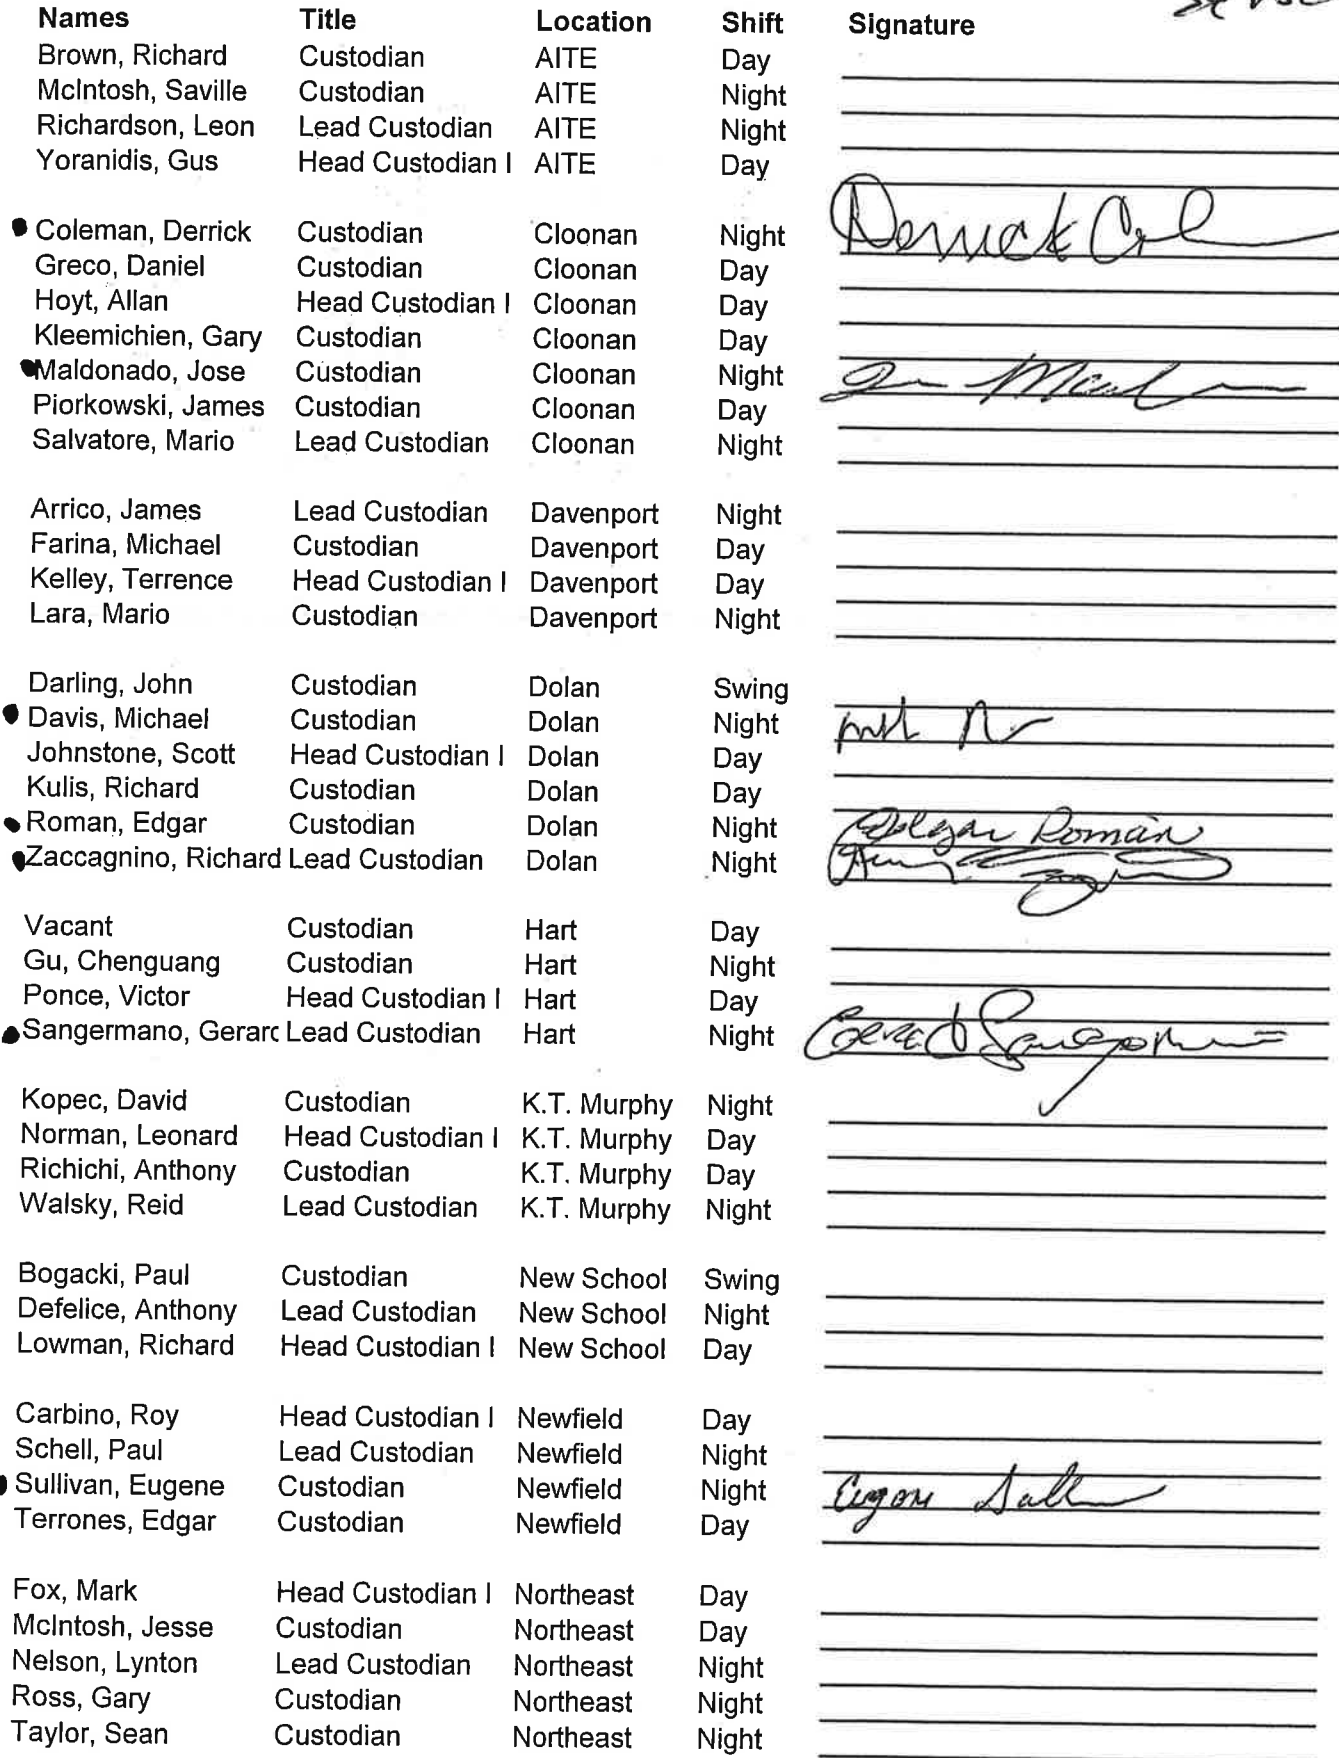 Names Title Location Shift Signature
Brown, Richard Custodian AITE Day
McIntosh, Saville Custodian AITE Night
Richardson, Leon Lead Custodian AITE Night
Yoranidis, Gus Head Custodian I AITE Day
Coleman, Derrick Custodian Cloonan Night Derrick Col
Greco, Daniel Custodian Cloonan Day
Hoyt, Allan Head Custodian I Cloonan Day
Kleemichien, Gary Custodian Cloonan Day
Maldonado, Jose Custodian Cloonan Night
Piorkowski, James Custodian Cloonan Day
Salvatore, Mario Lead Custodian Cloonan Night
Arrico, James Lead Custodian Davenport Night
Farina, Michael Custodian Davenport Day
Kelley, Terrence Head Custodian I Davenport Day
Lara, Mario Custodian Davenport Night
Darling, John Custodian Dolan Swing
Davis, Michael Custodian Dolan Night
Johnstone, Scott Head Custodian I Dolan Day
Kulis, Richard Custodian Dolan Day
Roman, Edgar Custodian Dolan Night Edgar Román
Zaccagnino, Richard Lead Custodian Dolan Night
Vacant Custodian Hart Day
Gu, Chenguang Custodian Hart Night
Ponce, Victor Head Custodian I Hart Day
Sangermano, Gerard Lead Custodian Hart Night
Kopec, David Custodian K.T. Murphy Night
Norman, Leonard Head Custodian I K.T. Murphy Day
Richichi, Anthony Custodian K.T. Murphy Day
Walsky, Reid Lead Custodian K.T. Murphy Night
Bogacki, Paul Custodian New School Swing
Defelice, Anthony Lead Custodian New School Night
Lowman, Richard Head Custodian I New School Day
Carbino, Roy Head Custodian I Newfield Day
Schell, Paul Lead Custodian Newfield Night
Sullivan, Eugene Custodian Newfield Night
Terrones, Edgar Custodian Newfield Day
Fox, Mark Head Custodian I Northeast Day
McIntosh, Jesse Custodian Northeast Day
Nelson, Lynton Lead Custodian Northeast Night
Ross, Gary Custodian Northeast Night
Taylor, Sean Custodian Northeast Night